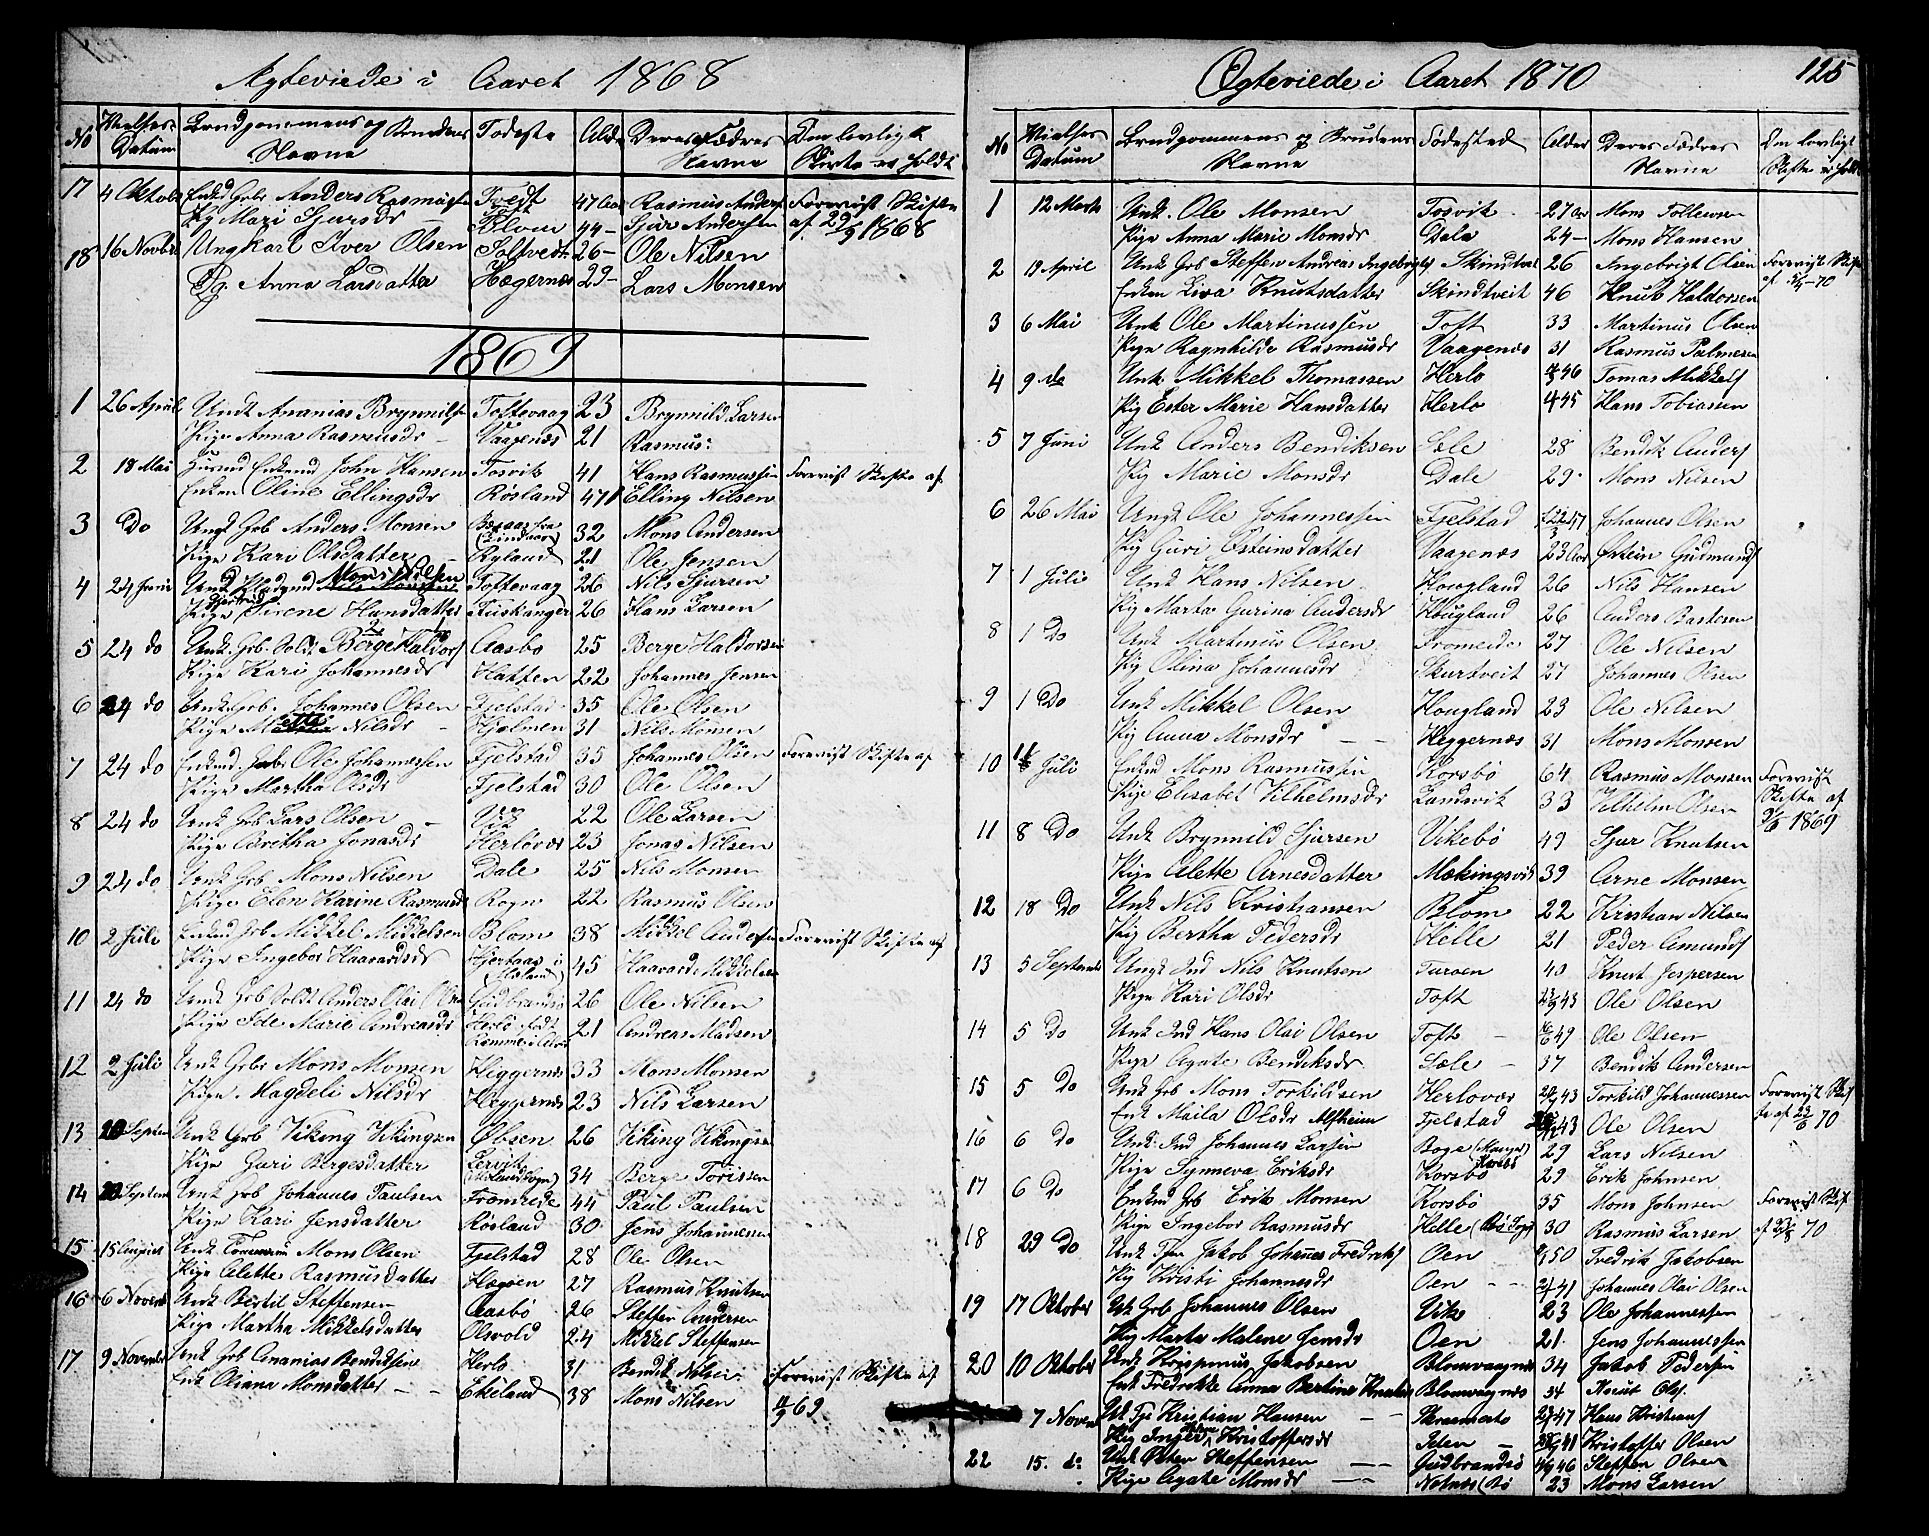 Ægteviede i Aaret 1868
No Vielses- Datum Brudgommens og Brudens Navne Fødeste Alder Deres Fædres Navne Om lovligt Skifte er holdt
17 4 Oktobr Enkd Grb Anders Rasmussen Tvedt 47 Aar Rasmus Anders Forevist Skifte
Pg Mari Sjursdr Blom 44 – Sjur Andersen af 29/9 1868
18 16 Novbr Ungkarl Iver Olsen Toltvedt 26 – Ole Nilsen
Pg. Anna Larsdatter Hægernæs 29 – Lars Monsen
1869
1 26 April Unk Ananias Brynnilsen Toftevaag 23 Brynnild Larsen
Pige Anna Rasmusdr – Vaagenæs 21 Rasmus
2 18 Mai Husmd Enkemd John Hansen Tosvik 41 Hans Rasmussen Forevist Skifte af
Enken Oline Ellingsdr Røsland 47 Elling Nilsen
3 Do Ungk Grb Anders Monsen 32 Mons Andersen
Pige Kari Olsdatter Ryland 21 Ole Jensen
4 24 Juni Mons Nilsen Toftevaag 26 Nils Sjursen
Pige Sirene Hansdatter 26 Hans Larsen
5 24 do Unk. Grb. Sold. Berge Haldors Aasbø 25 Berge Haldorsen
Pige Kari Johannesdr Hatten 22 Johannes Jensen
6 24 do Unk. Grb. Johannes Olsen Fjelstad 35 Ole Olsen
Pige Mette Nilsdr – Hjelmen 31 Nils Monsen
7 24 do Enkmd. Ole Johannessen Fjelstad 35 Johannes Olsen Forevist Skifte af
Pige Martha Olsdr Fjelstad 30 Ole Olsen
8 24 do Unk Grb Lars Olsen – Vik 22 Ole Larsen
Pige Bretha Jonasdr Herløvær 23 Jonas Nilsen
9 24 do Unk Grb Mons Nilsen Dale 25 Nils Monsen
Pige Elen Karine Rasmusdr Rogn 22 Rasmus Olsen
10 2 Juli Enkmd Grb Mikkel Mikkelsen Blom 38 Mikkel Andersen Forevist Skifte af
Pige Ingebor Haavardsdr 45 Haavard Mikkelsen
11 24 do Unk Grb Soldt Anders Olai Olsen Gudbrandsø 26 Ole Nilsen
Pige Ide Marie Andreasdr Herlø født 21 Andreas Madsen
12 2 Juli Unk Grbr Mons Monsen Heggernæs 33 Mons Monsen
Pige Magdeli Nilsdr Heggernæs 23 Nils Larsen
13 20 Septem Unk Grb Viking Vikingsen Øbsen 26 Viking Vikingsen
Pige Guri Bergesdatter 34 Berge Torissen
14 20 Septem Unk Grb Johannes Paulsen Fromrede 44 Paul Paulsen
Pige Kari Jensdatter Røsland 30 Jens Johannessen
15 15 August Unk Mons Olsen Fjelstad 28 Ole Olsen
Pige Alette Rasmusdatter Hægøen 27 Rasmus Knutsen
16 6 Novem Unk Bertil Steffensen Aasbø 26 Steffen Andersen
Pige Martha Mikkelsdatter Olsvold 24 Mikkel Steffensen
17 9 November Unk Grb Ananias Bendiksen Herlo 31 Bendik Nilsen Forevist Skifte af
Enk Oliana Monsdatter – – Ekeland 38 Mons Nilsen 11/9 69
Ægteviede i Aaret 1870 125
No Vielses Datum Brudgommens og Brudens Navne Fødested Alder Deres Fædres Navne Om lovligt Skifte er holdt
1 12 Marts Unk. Ole Monsen Tosvik 27 Aar Mons Tollevsen
Pige Anna Marie Monsdr Dale 24 – Mons Hansen
2 19 April Unk Grb Steffen Andreas Ingebrigts Skindtvet 26 Ingebrigt Olsen Forevist Skifte
Enken Lisa Knutsdatter Skindtveit 46 Knut Haldorsen af 5/4–70
3 6 Mai Unk Ole Martinussen Toft 33 Martinus Olsen
Pige Ragnhilde Rasmusdr Vaagenæs 31 Rasmus Palmesen
4 9 do Unk Mikkel Thomassen Herlo 46 Tomas Mikkels
Pig Ester Marie Hansdatter Herlo 45 Hans Tobiassen
5 7 Juni Unk Anders Bendiksen Sæle 28 Bendik Anders
Pig Marie Monsdr Dale 29 Mons Nilsen
6 26 Mai Ungk Ole Johannessen Fjelstad 47 Johannes Olsen
Pig Guri Østeinsdatter Vaagenæs 23 Aar Østein Gudmunds
7 1 Juli Unk Hans Nilsen Hougland 26 Nils Hansen
Pig Marta Gurina Andersdr Hougland 26 Anders Bastesen
8 1 Do Unk Martinus Olsen Fromreide 27 Ole Nilsen
Pig Olina Johannesdr Skurtveit 27 Johannes Olsen
9 1 Do Unk Mikkel Olsen Hougland 23 Ole Nilsen
Pig Anna Monsdr – – Heggernæs 31 Mons Monsen
10 Juli Enkmd Mons Rasmussen Korsbø 64 Rasmus Monsen Forevist
Pige Elisabet Vilhelmsdr Landsvik 33 Vilhelm Olsen Skifte af
11 8 Do Unk Brynnild Sjursen Vikebø 49 Sjur Knutsen 9/6 1869
Pige Alette Arnesdatter Mækingsvik 39 Arne Monsen
12 18 Do Unk Nils Kristiansen Blom 22 Kristian Nilsen
Pig Bertha Pedersdr Helle 21 Peder Amunds
13 5 September Ungk Ind Nils Knutsen Turøen 40 Knut Jespersen
Pige Kari Olsdr Toft 43 Ole Olsen
14 5 Do Unk Ind Hans Olai Olsen Toft – 49 Ole Olsen
Pige Agate Bendiksdr Sæle – 37 Bendik Andersen
15 5 Do Unk Grb Mons Torkildsen Herlovær 43 Torkild Johannessen Forevist Skif
Enk Maila Olsdr Alfheim Fjelstad 43 Ole Olsen te af 23/6 70
16 6 Do Unk. Ind Johannes Larsen Boge (Manger) 29 Lars Nilsen
Pige Synneva Eriksdr Korsbø 29 Erik Johnsen
17 6 Do Enkmd Grb Erik Monsen Korsbø 35 Mons Johnsen Forevist Skif
Pige Ingebor Rasmusdr Helle (Bø Sogn) 30 Rasmus Larsen af 23/8 70
18 29 Do Unk Tjen Jakob Johannes Fredriks Oen 50 Fredrik Jakobsen
Pig Kristi Johannesdr Oen – – 41 Johannes Olai Olsen
19 17 Oktober Unk Grb Johannes Olsen Vik 23 Ole Johannessen
Pig Marta Malene Jensdr Oen 21 Jens Johannessen
20 10 Oktober Unk Krispinus Jakobsen Blomvaagnes 34 Jakob Pedersen
Enk Fredrikke Anna Bertine Knuts Blomvaagnes 34 Knut Ols.
7 Novem Unk Tje Kristian Hansen – – 47 Hans Kristians
Pig Inger Kristoffersdr 41 Kristoffer Olsen
22 15. do Unk Østen Steffensen – – Gudbrandsø 46 Steffen Olsen
Pige Agate Monsdr – – Notnes (Bø 23 Mons Larsen